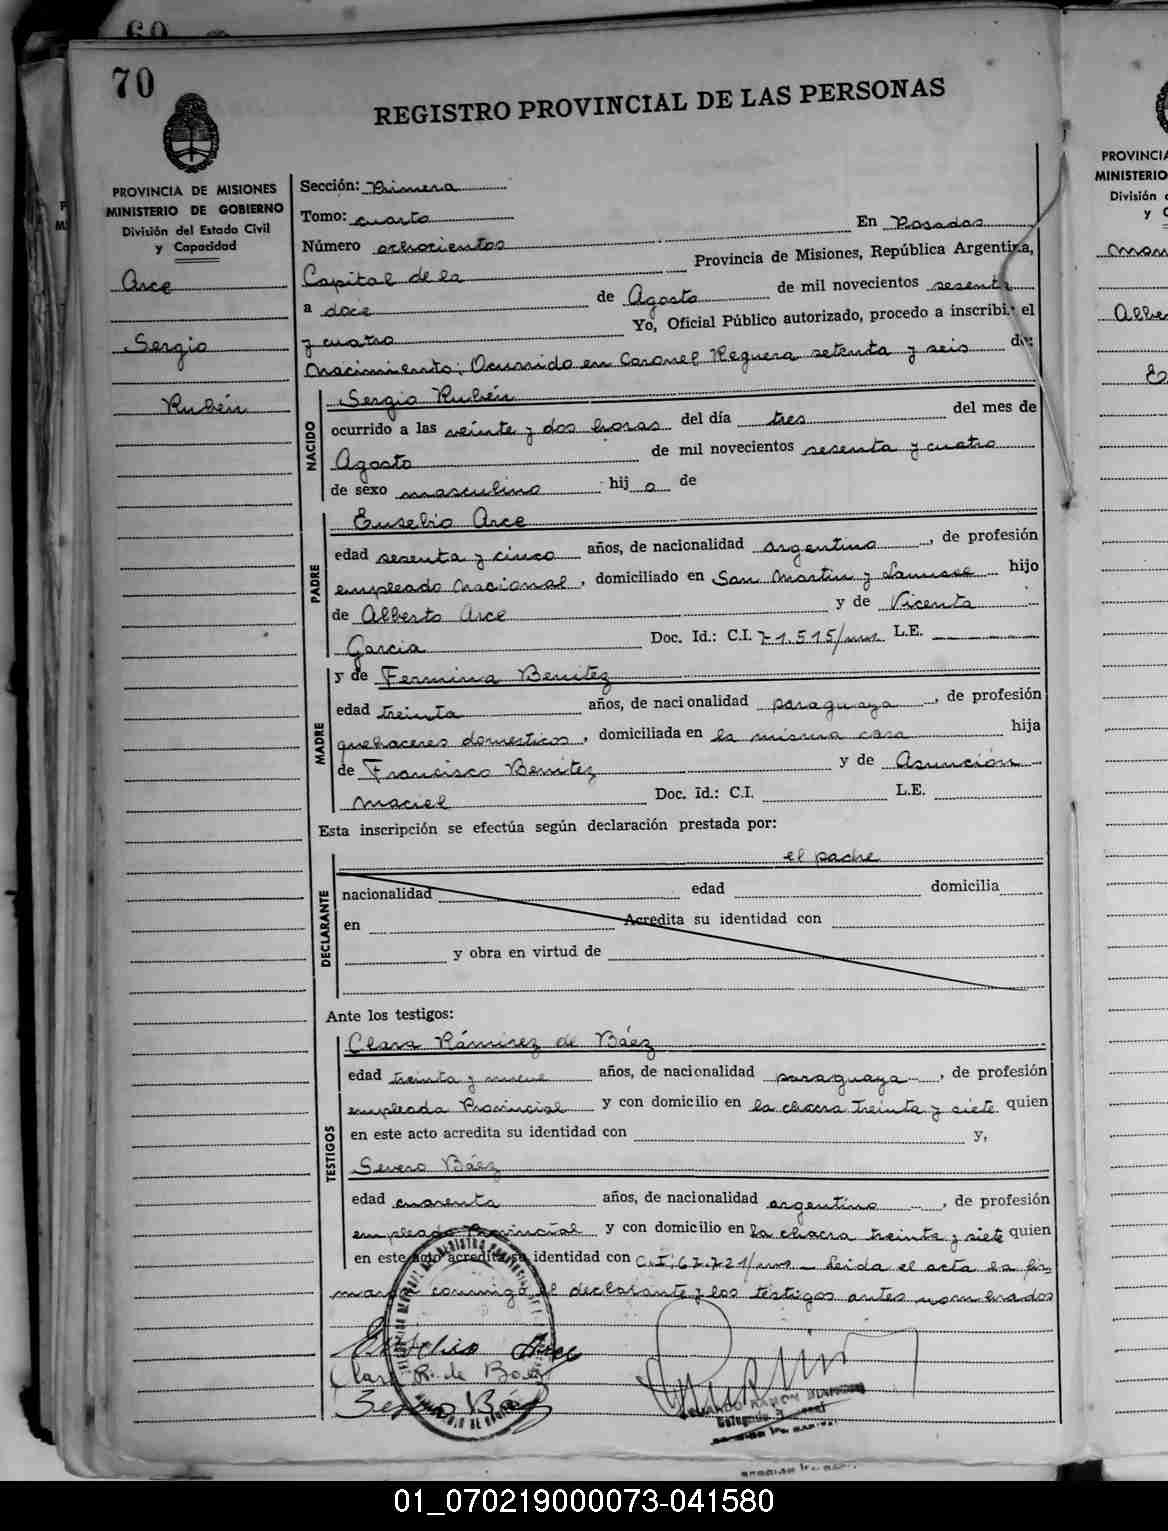 69
70
REGISTRO PROVINCIAL DE LAS PERSONAS
PROVINCIA DE MISIONES
MINISTERIO DE GOBIERNO
División del Estado Civil
y Capacidad
Arce
Sergio
Rubén
Sección: Primera
Tomo: cuarto
Número ochocientos En Posadas
Capital de la Provincia de Misiones, República Argentina,
a doce de Agosto de mil novecientos sesenta
y cuatro Yo, Oficial Público autorizado, procedo a inscribir el
nacimiento; Ocurrido en Coronel Reguera setenta y seis de:
NACIDO
Sergio Rubén
ocurrido a las veinte y dos horas del día tres del mes de
Agosto de mil novecientos sesenta y cuatro
de sexo masculino hij o de
PADRE
Eusebio Arce
edad sesenta y cinco años, de nacionalidad argentino, de profesión
empleado nacional, domiciliado en San Martin y hijo
de Alberto Arce y de Vicenta
Garcia Doc. Id.: C.I. 71.515/mns L.E.
MADRE
y de Fermina Benitez
edad treinta años, de nacionalidad paraguaya, de profesión
quehaceres domesticos, domiciliada en la misma casa hija
de Francisco Benitez y de Asunción
Maciel Doc. Id.: C.I. L.E.
Esta inscripción se efectúa según declaración prestada por:
DECLARANTE
el padre
nacionalidad edad domicilia
en Acredita su identidad con
y obra en virtud de
Ante los testigos:
TESTIGOS
Clara Rámirez de Báez
edad treinta y nueve años, de nacionalidad paraguaya, de profesión
empleada Provincial y con domicilio en la chacra treinta y siete quien
en este acto acredita su identidad con y,
Severo Báez
edad cuarenta años, de nacionalidad argentino, de profesión
empleado Provincial y con domicilio en la chacra treinta y siete quien
en este acto acredita su identidad con C.I. 67.721/mns - Leida el acta la fir
man conmigo el declarante y los testigos antes nombrados
Eusebio Arce
Clara R. de Baez
Severo Báez
RAMON
Delegado
PROVINCIA
MINISTERIO
División d
y C
01_070219000073-041580